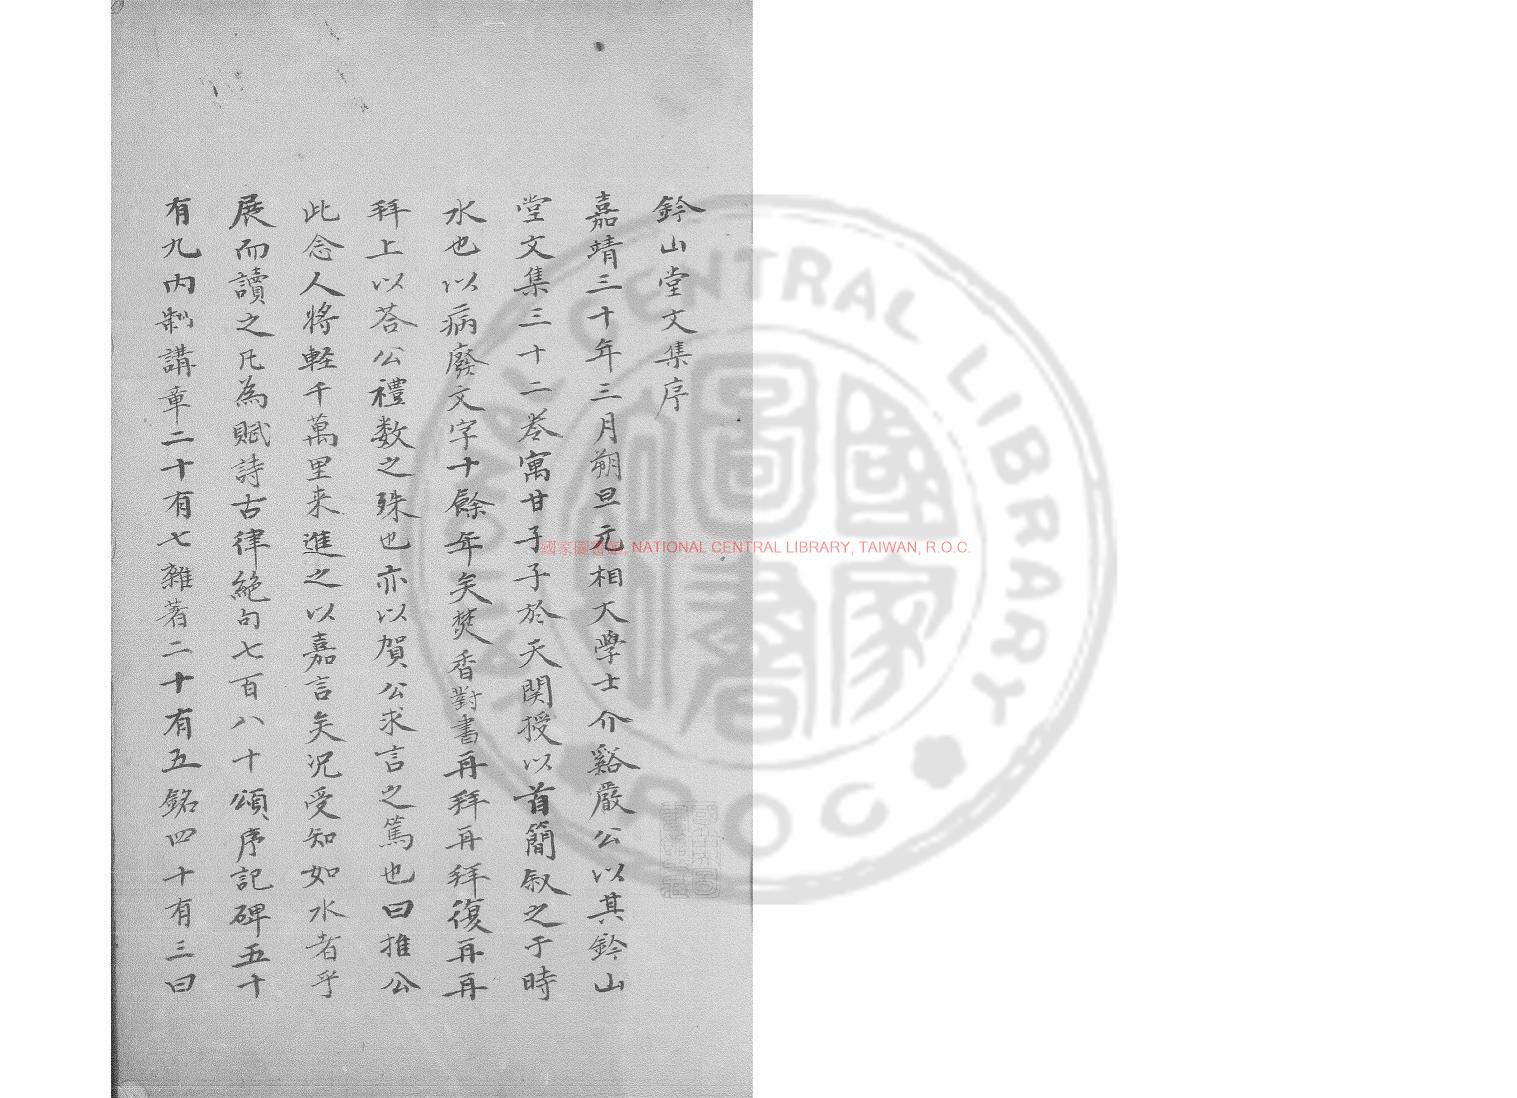 鈐山堂文集序
嘉靖三十年三月朔旦元相大學士介谿嚴公以其鈐山
堂文集三十二卷寓甘子于於天関授以首簡叙之于時
水也以病廢文字十餘年矣焚香對書再拜再拜復再再
拜上以荅公禮数之殊也亦以賀公求言之篤也曰推公
此念人将軽千萬里来進之以嘉言矣况受知如水者乎
展而讀之凡為賦詩古律絶句七百八十頌序記碑五十
有九内制講章二十有七雜著二十有五銘四十有三曰
國家圖書館, NATIONAL CENTRAL LIBRARY, TAIWAN, R.O.C.
NATIONAL CENTRAL LIBRARY R.O.C.
國家圖書